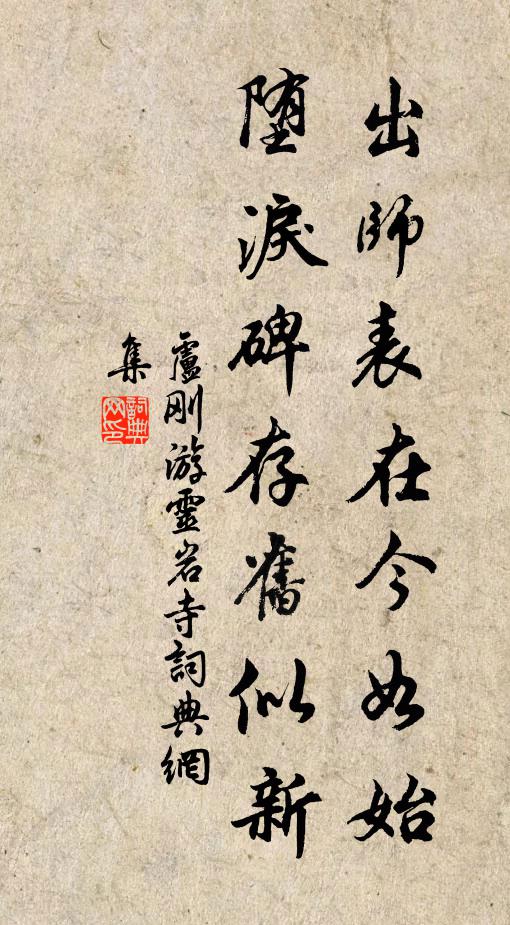 出師表在今如始
堕淚碑存舊似新
盧剛游靈岩寺詞典網
集
詞典
网印